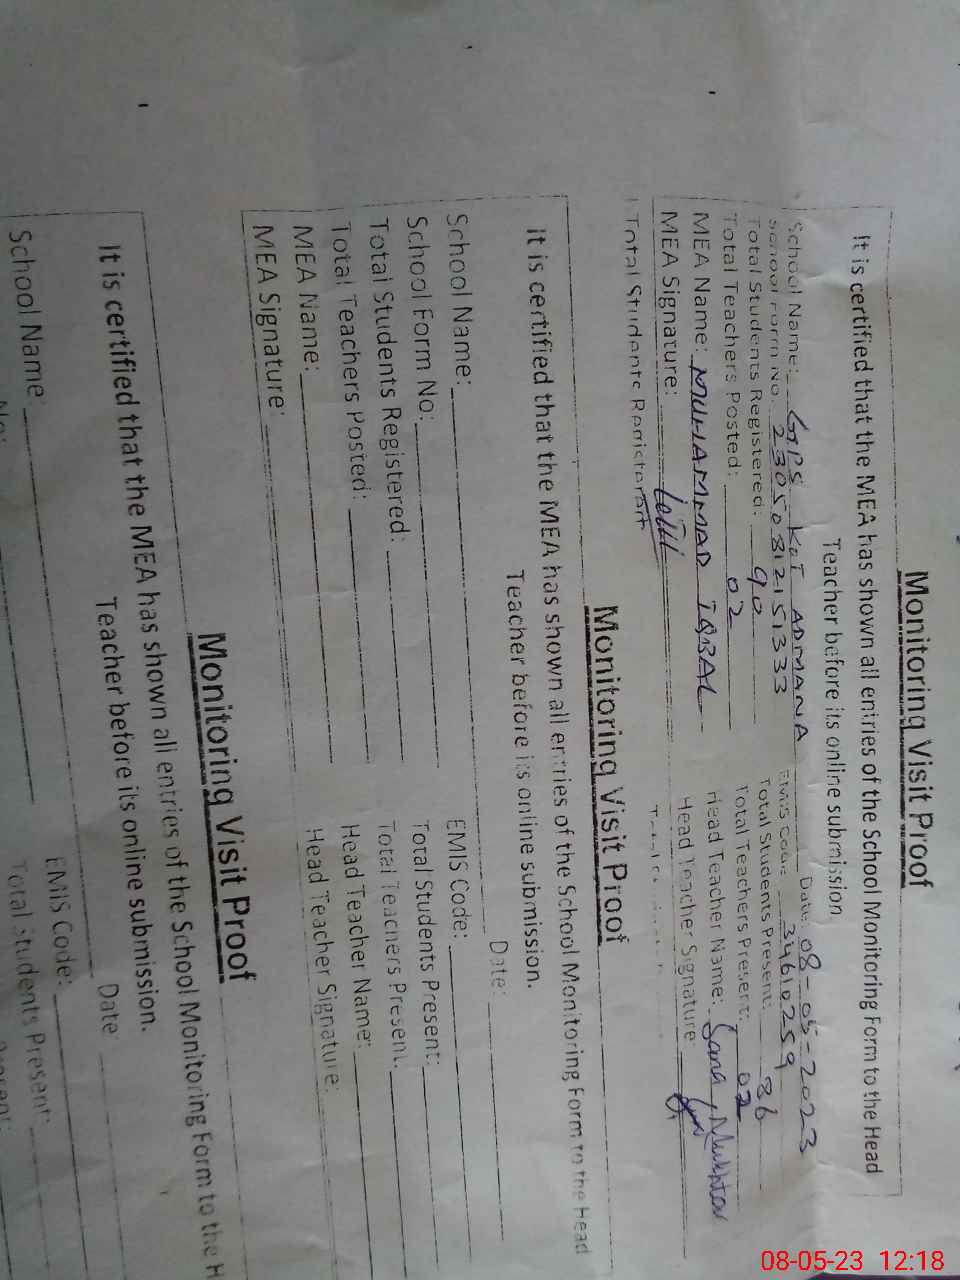 Monitoring Visit Proof
It is certified that the MEA has shown all entries of the School Monitoring Form to the Head
Teacher before its online submission
Date: 08-05-2023
School Name: GPS KOT ADMANA
EMIS Code: 34610259
School Form No. 23050812151333
Total Students Present: 86
Total Students Registered: 90
Total Teachers Present: 02
Total Teachers Posted: 02
Head Teacher Name: Sana Mukhtar
MEA Name: MUHAMMAD IQBAL
Head Teacher Signature:
MEA Signature:
Total Students Registered:
Monitoring Visit Proof
It is certified that the MEA has shown all entries of the School Monitoring Form to the Head
Teacher before its online submission.
Date:
School Name:
EMIS Code:
School Form No:
Total Students Present:
Total Students Registered:
Total Teachers Present.
Total Teachers Posted:
Head Teacher Name:
MEA Name:
Head Teacher Signature:
MEA Signature:
Monitoring Visit Proof
It is certified that the MEA has shown all entries of the School Monitoring Form to the H
Teacher before its online submission.
Date:
School Name:
EMIS Code:
No:
Total Students Present:
08-05-23 12:18